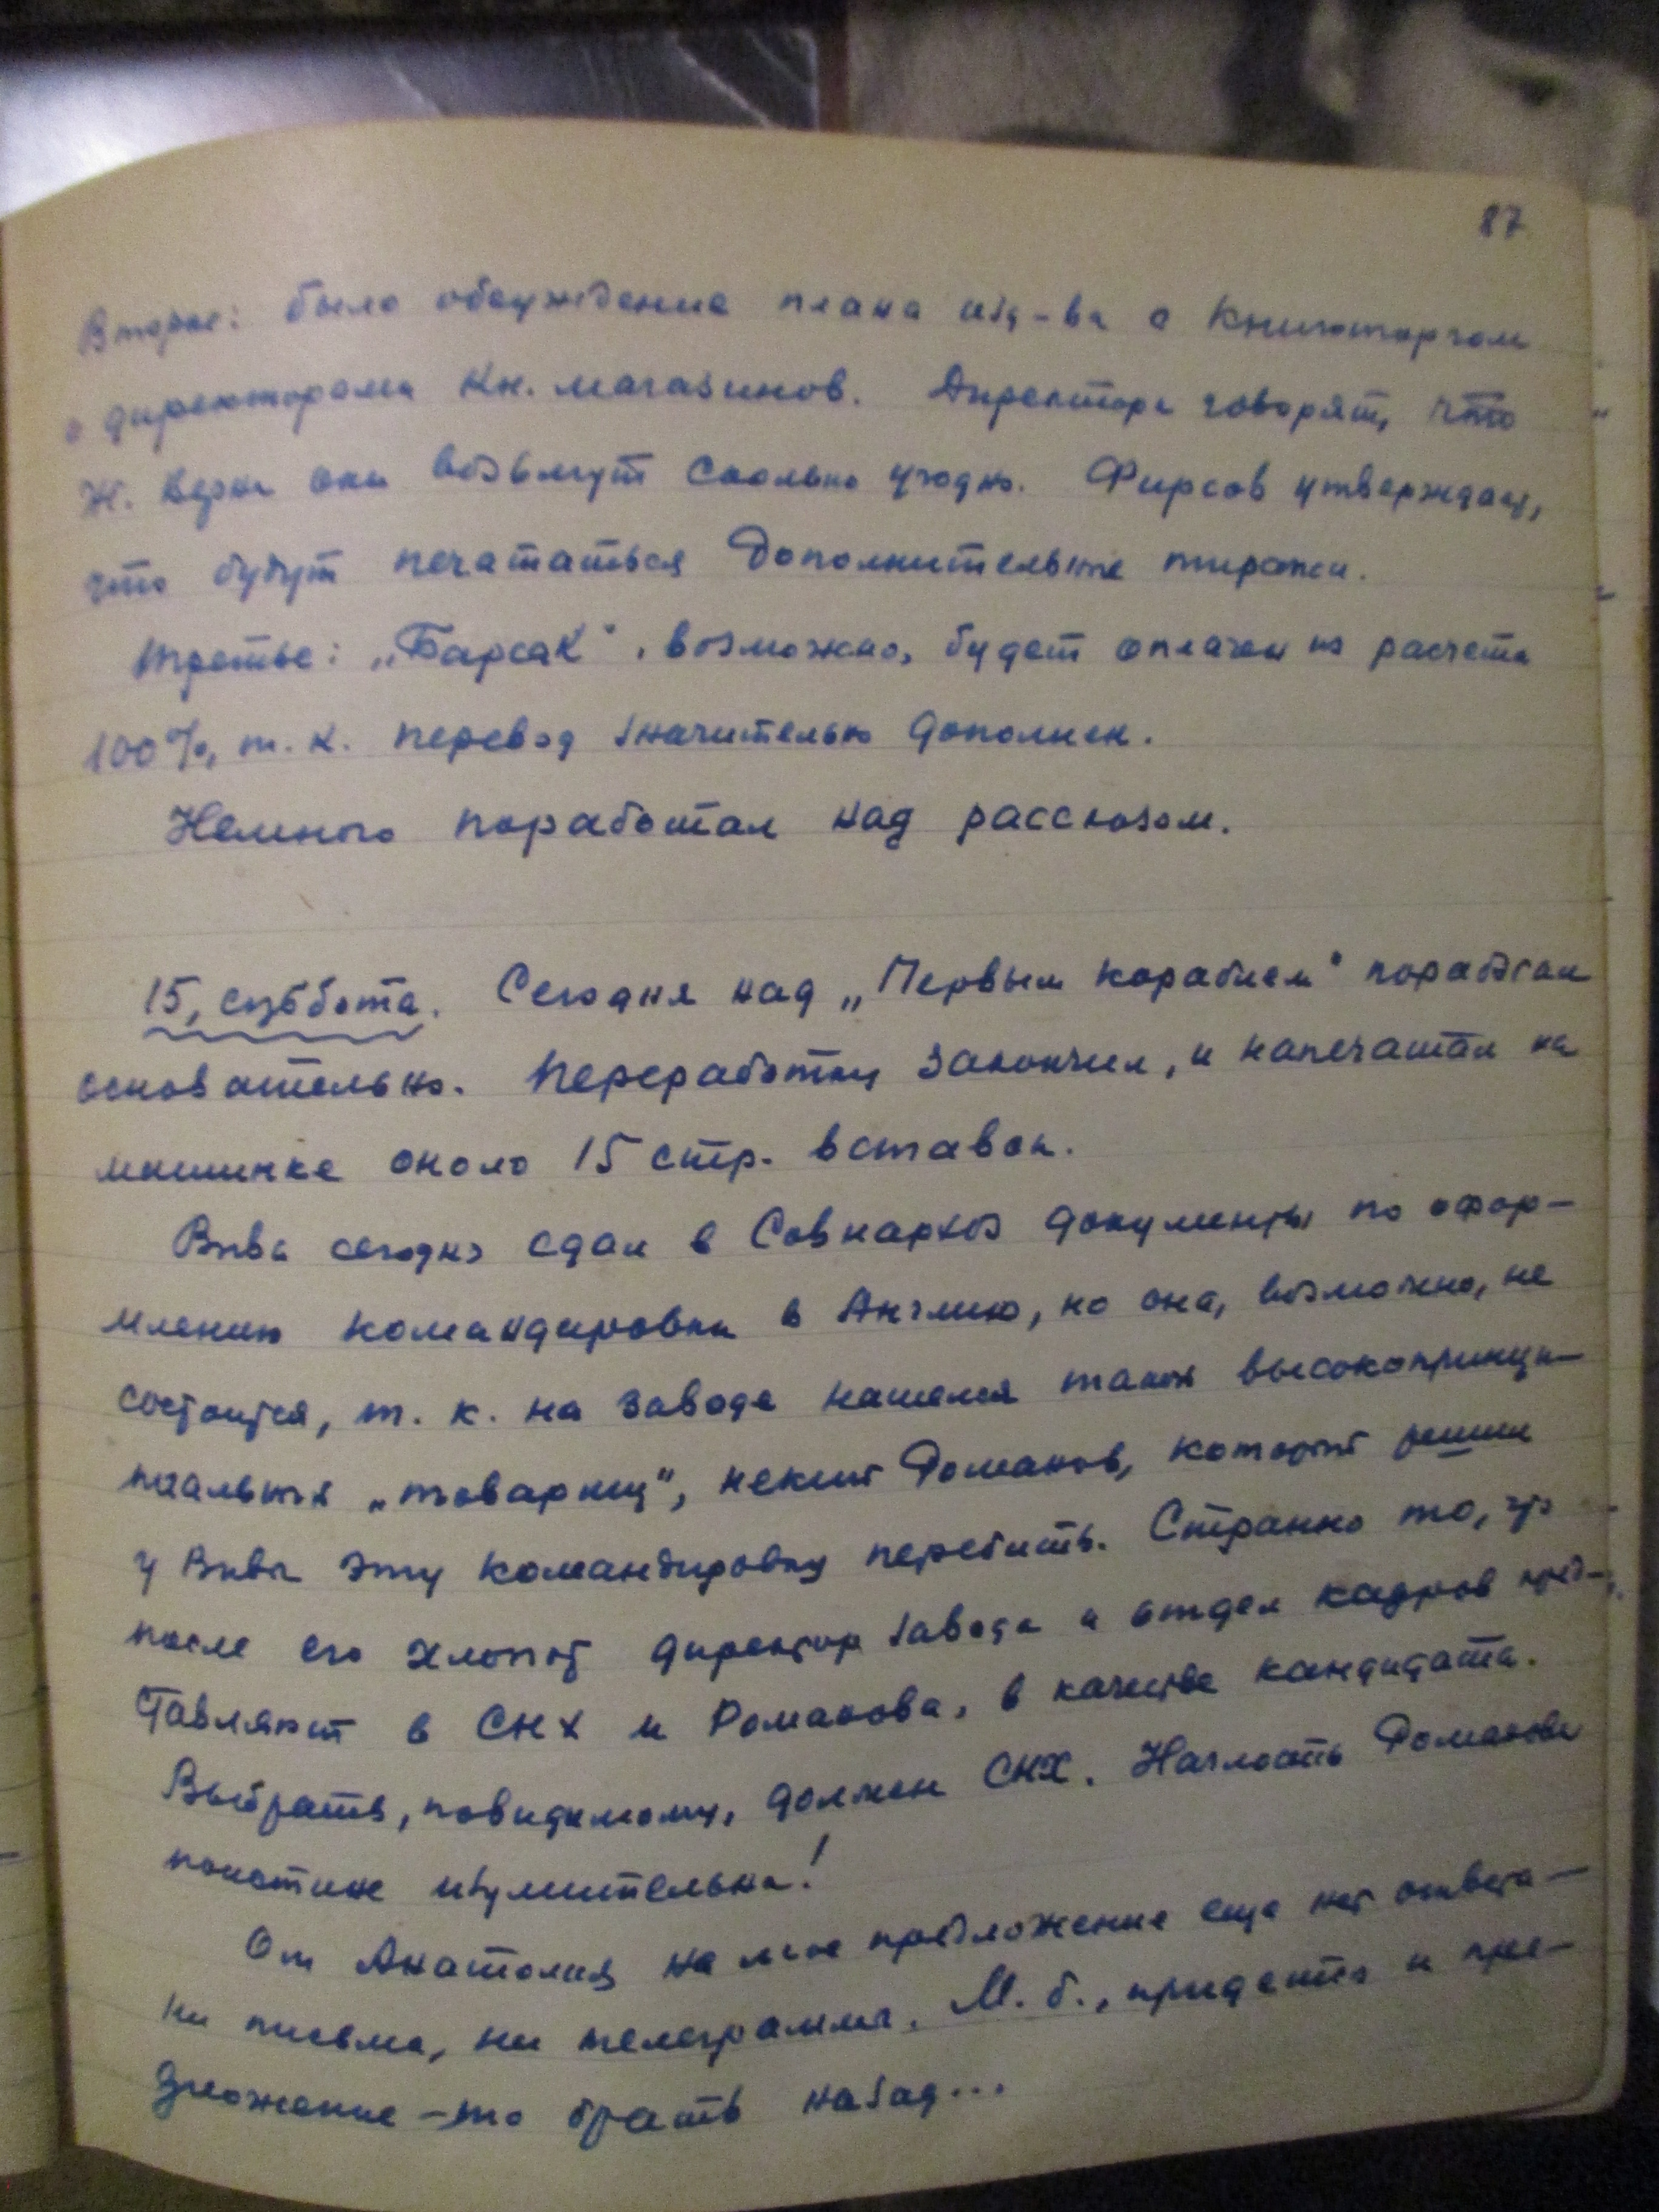 87
Второе: было обсуждение плана изд-ва с Книготоргом
и директорами кн. магазинов. Директора говорят, что
Ж. Верна они возьмут сколько угодно. Фирсов утверждает,
что будут печататься дополнительные тиражи.
Третье: „Барсак", возможно, будет оплачен из расчета
100%, т. к. перевод значительно дополнен.
Немного поработал над рассказом.
15, суббота. Сегодня над „Первым кораблем" поработал
основательно. Переработку закончил, и напечатал на
машинке около 15 стр. вставок.
Вива сегодня сдал в Совнархоз документы по офор-
млению командировки в Англию, но она, возможно, не
состоится, т. к. на заводе нашелся такой высокопринци-
пиальный „товарищ", некий Романов, который решил
у Вивы эту командировку перебить. Странно то, что
после его хлопот директор завода и отдел кадров пред-
ставляют в СНХ и Романова, в качестве кандидата.
Выбрать, повидимому, должен СНХ. Наглость Романова
поистине изумительна!
От Анатолия на мое предложение еще нет ответа —
ни письма, ни телеграммы. М. б., придется и пре-
дложение-то брать назад...